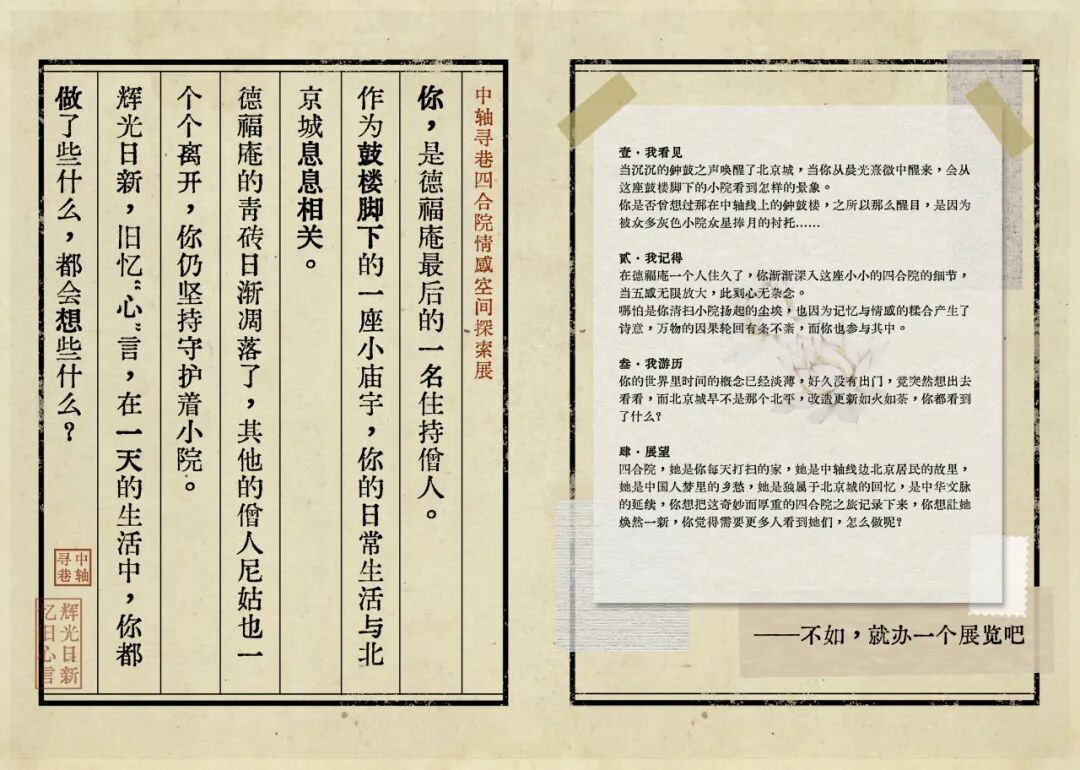 中轴寻巷四合院情感空间探索展
你，是德福庵最后的一名住持僧人。
作为鼓楼脚下的一座小庙宇，你的日常生活与北
京城息息相关。
德福庵的青砖日渐凋落了，其他的僧人尼姑也一
个个离开，你仍坚持守护着小院。
辉光日新，旧忆“心”言，在一天的生活中，你都
做了些什么，都会想些什么？
中轴
寻巷
辉光日新
忆旧心言
壹·我看见
当沉沉的钟鼓之声唤醒了北京城，当你从晨光熹微中醒来，会从
这座鼓楼脚下的小院看到怎样的景象。
你是否曾想过那在中轴线上的钟鼓楼，之所以那么醒目，是因为
被众多灰色小院众星捧月的衬托……
贰·我记得
在德福庵一个人住久了，你渐渐深入这座小小的四合院的细节，
当五感无限放大，此刻心无杂念。
哪怕是你清扫小院扬起的尘埃，也因为记忆与情感的糅合产生了
诗意，万物的因果轮回有条不紊，而你也参与其中。
叁·我游历
你的世界里时间的概念已经淡薄，好久没有出门，竟突然想出去
看看，而北京城早不是那个北平，改造更新如火如荼，你都看到
了什么？
肆·展望
四合院，她是你每天打扫的家，她是中轴线边北京居民的故里，
她是中国人梦里的乡愁，她是独属于北京城的回忆，是中华文脉
的延续，你想把这奇妙而厚重的四合院之旅记录下来，你想让她
焕然一新，你觉得需要更多人看到她们，怎么做呢？
——不如，就办一个展览吧